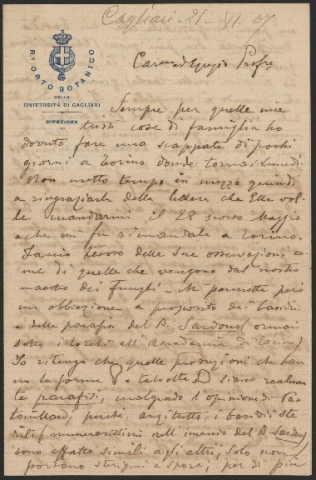 Cagliari - 21 - VI. 07.
R.º ORTO BOTANICO
DELLA
UNIVERSITÀ DI CAGLIARI
DIREZIONE
Car.mo ed Egregio Prof.re
Sempre per quelle mie
tristi cose di famiglia ho
dovuto fare una scappata di pochi
giorni a Torino donde tornai lunedì.
Non metto tempo in mezzo quindi
a ringraziarla della lettera che Ella vol-
le mandarmi il 28 scorso Maggio
e che mi fu rimandata a Torino.
Faccio tesoro delle Sue osservazioni co
me di quelle che vengono dal nostro
maestro dei Funghi. Mi permetta però
un obbiezione a proposito dei basidii
e delle parafisi del B. Sardous (ormai
sotto i torchi all'Accademia di Torino)
Io ritengo che quelle produzioni che han
no la forma e talvolta siano realmente
parafisi, malgrado l'opinione di
perché, anzitutto, i basidi ste
rili (numerosissimi nell'imenio del B. Sardous)
sono affatto simili agli altri, solo non
portano sterigmi e spore, per di più